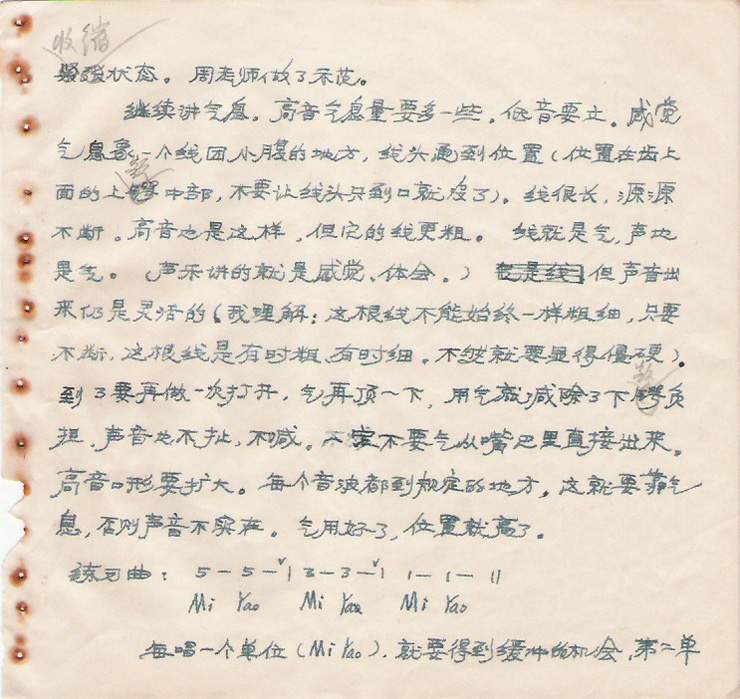 收缩
紧张状态。周老师做了示范。
继续讲气息。高音气息量要多一些。低音要立。感觉
气息象一个线团小腹的地方，线头通到位置（位置在齿上
面的上腭中部，不要让线头只到口就没了）。线很长，源源
不断。高音也是这样，但它的线更粗。 线就是气，声也
是气。（声乐讲的就是感觉、体会。）也是线，但声音出
来仍是灵活的（我理解：这根线不能始终一样粗细，只要
不断，这根线是有时粗、有时细。不然就要显得僵硬）。
到3要再做一次打开，气再顶一下，用气就减除了下腭负
担，声音也不扯，不喊。一定不要气从嘴巴里直接出来。
高音口形要扩大。每个音波都到规定的地方。这就要靠气
息，否则声音不实在。气用好了，位置就高了。
练习曲： 5 — 5 — ˅ | 3 — 3 — ˅ | 1 — 1 — ||
Mi Yao Mi Yao Mi Yao
每唱一个单位（Mi Yao）．就要得到缓冲的机会，第二单